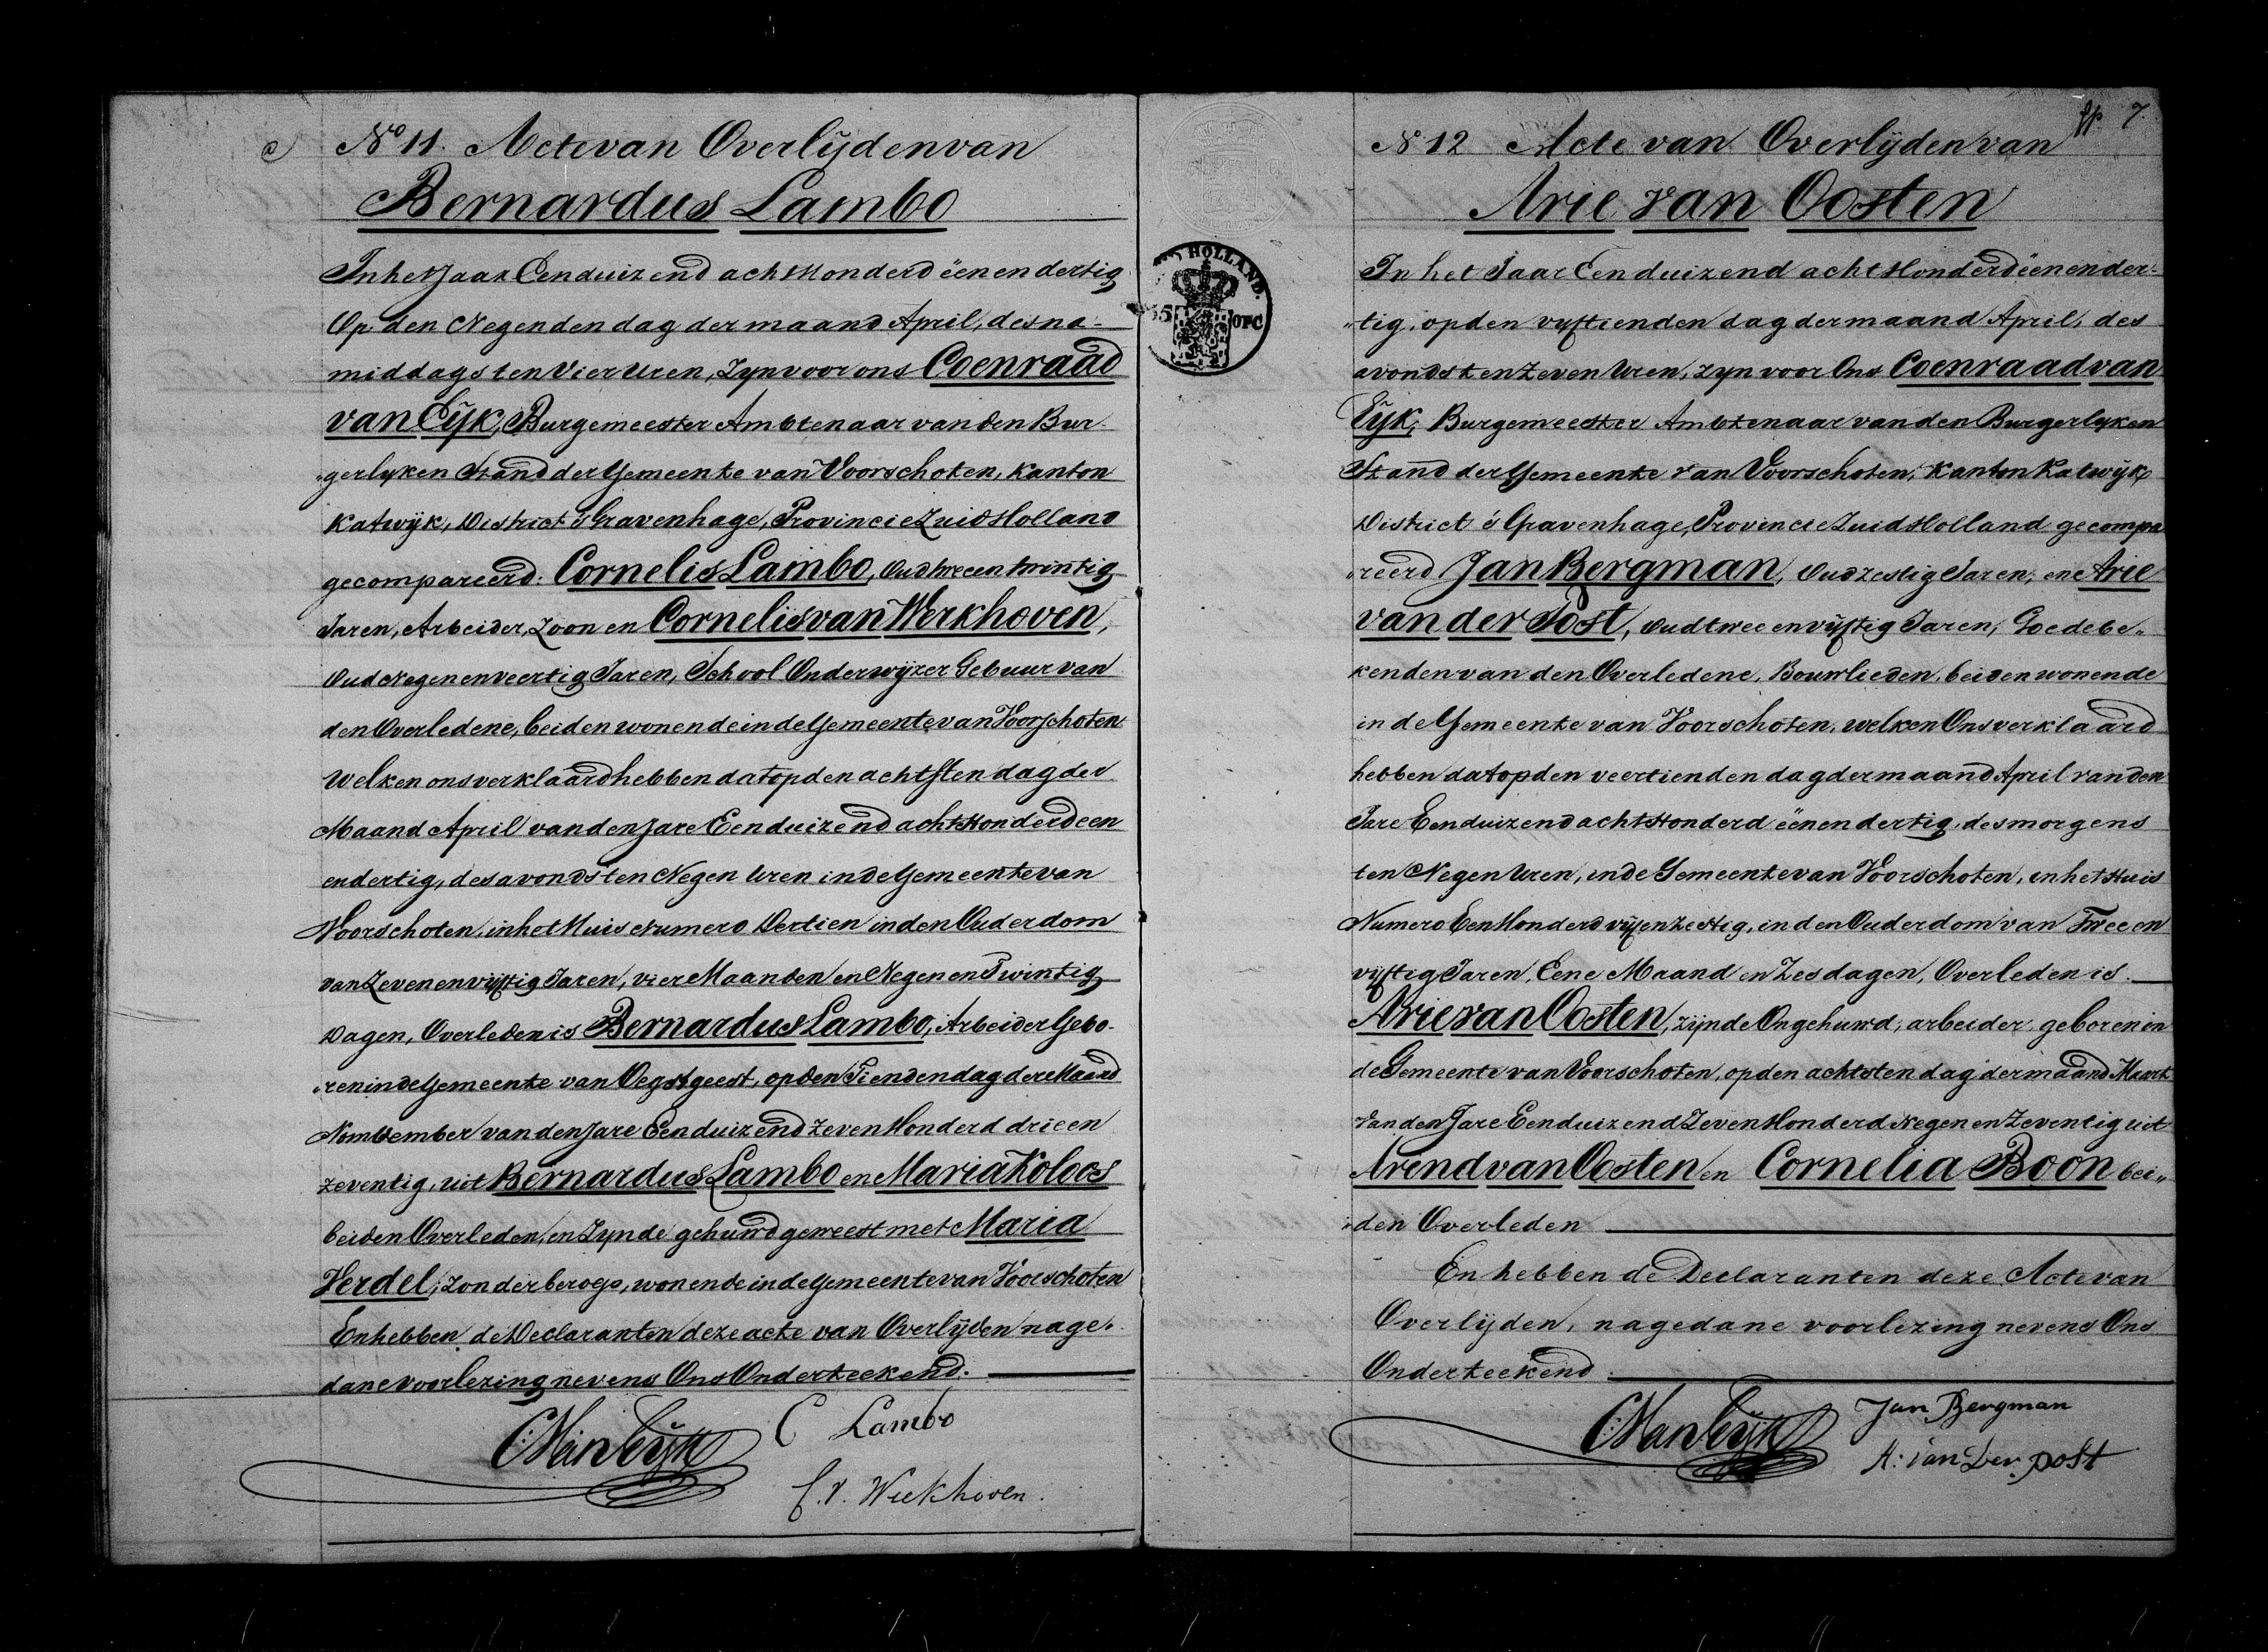 No 11. Acte van Overlijden van
Bernardus Lambo
In het Jaar Eenduizend acht Honderd éénendertig
Op den Negenden dag der maand April, des na-
middags ten Vier Uren, Zyn voor ons Coenraad
van Eijk, Burgemeester Ambtenaar van den Bur-
"gerlyken Stand der Gemeente van Voorschoten, Kanton
Katwijk, District 's Gravenhage, Provincie Zuid Holland
gecompareerd: Cornelis Lambo, Oud tweeentwintig
Jaren, Arbeider, Zoon en Cornelis van Werkhoven,
Oud Negenenveertig Jaren, School Onderwijzer Gebuur van
den Overledene, beiden wonende in de Gemeente van Voorschoten
Welken ons verklaard hebben dat op den achtsten dag der
Maand April van den Jare Eenduizend acht Honderd een
endertig, des avonds ten Negen Uren in de Gemeente van
Voorschoten, in het Huis Numero Dertien in den Ouderdom
van Zevenenvijftig Jaren, vier Maanden en Negen en Twintig
Dagen, Overleden is Bernardus Lambo, Arbeider Gebo-
"ren in de Gemeente van Oegstgeest, op den Tienden dag der Maand
Nombember van den Jare Eenduizend Zeven Honderd drieen
zeventig, uit Bernardus Lambo en Maria Koloos
beiden Overleden, en Zynde gehuwd geweest met Maria
Verdel, zonder beroep, wonende in de Gemeente van Voorschoten
En hebben de Declaranten deze acte van Overlijden nage-
dane voorlezing nevens Ons Onderteekend.
CVanEijk C Lambo
C.V. Werkhoven.
7.
No 12 Acte van Overlijden van
Arie van Oosten
In het Jaar Eenduizend acht Honderd éénender-
"tig, op den vyftienden dag der maand April, des
avonds ten Zeven Uren, zyn voor Ons Coenraad van
Eyk, Burgemeester Ambtenaar van den Burgerlyken
Stand der Gemeente van Voorschoten, Kanton Katwijk
District 's Gravenhage, Provincie Zuid Holland gecompa
"reerd Jan Bergman, Oud zestig Jaren, en Arie
van der Post, Oud tweeenvijftig Jaren, Goede be"
kenden van den Overledene, Bouwlieden, beiden wonende
in de Gemeente van Voorschoten, welken Ons verklaard
hebben dat op den veertienden dag der maand April van den
Jare Eenduizend acht Honderd éénendertig, des morgens
ten Negen Uren, in de Gemeente van Voorschoten, in het Huis
Numero Een Honderd vijfenzestig, in den Ouderdom van Tweeen
vijftig Jaren, Eene Maand en Zes dagen, Overleden is.
Arie van Oosten, zijnde Ongehuwd, arbeider, geboren in
de Gemeente van Voorschoten, op den achtsten dag der maand Maart
Van den Jare Eenduizend Zeven Honderd Negen en Zeventig uit
Arend van Oosten en Cornelia Boon bei"
"den Overleden
En hebben de Declaranten deze Acte van
Overlijden, nagedane voorlezing nevens Ons
Onderteekend.
CVanEijk Jan Bergman
A: van Der post
HOLLAND.
OPC